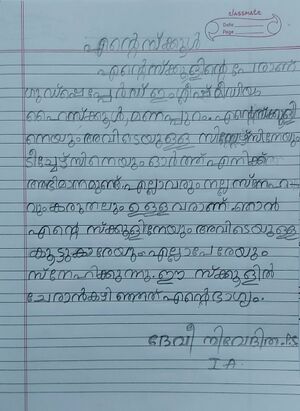 classmate
Date
Page
എന്റെ സ്ക്കൂൾ
എന്റെ സ്ക്കൂളിന്റെ പേരാണ്
ഗുഡ്ഷെപ്പേർഡ് ഇംഗ്ലീഷ് മീഡിയം
ഹൈസ്ക്കൂൾ, മണപ്പുറം. എന്റെ സ്ക്കൂളി
നെയും അവിടെയുള്ള സിസ്റ്റേഴ്സിനേയും
ടീച്ചേഴ്സിനെയും ഓർത്ത് എനിക്ക്
അഭിമാനമുണ്ട്. എല്ലാവരും നല്ല സ്നേഹ
വും കരുതലും ഉള്ളവരാണ്. ഞാൻ
എന്റെ സ്ക്കൂളിനേയും അവിടെയുള്ള
കൂട്ടുകാരേയും എല്ലാപേരേയും
സ്നേഹിക്കുന്നു. ഈ സ്ക്കൂളിൽ
ചേരാൻ കഴിഞ്ഞത് എന്റെ ഭാഗ്യം.
ദേവീ നിവേദിത. P.S
I A.